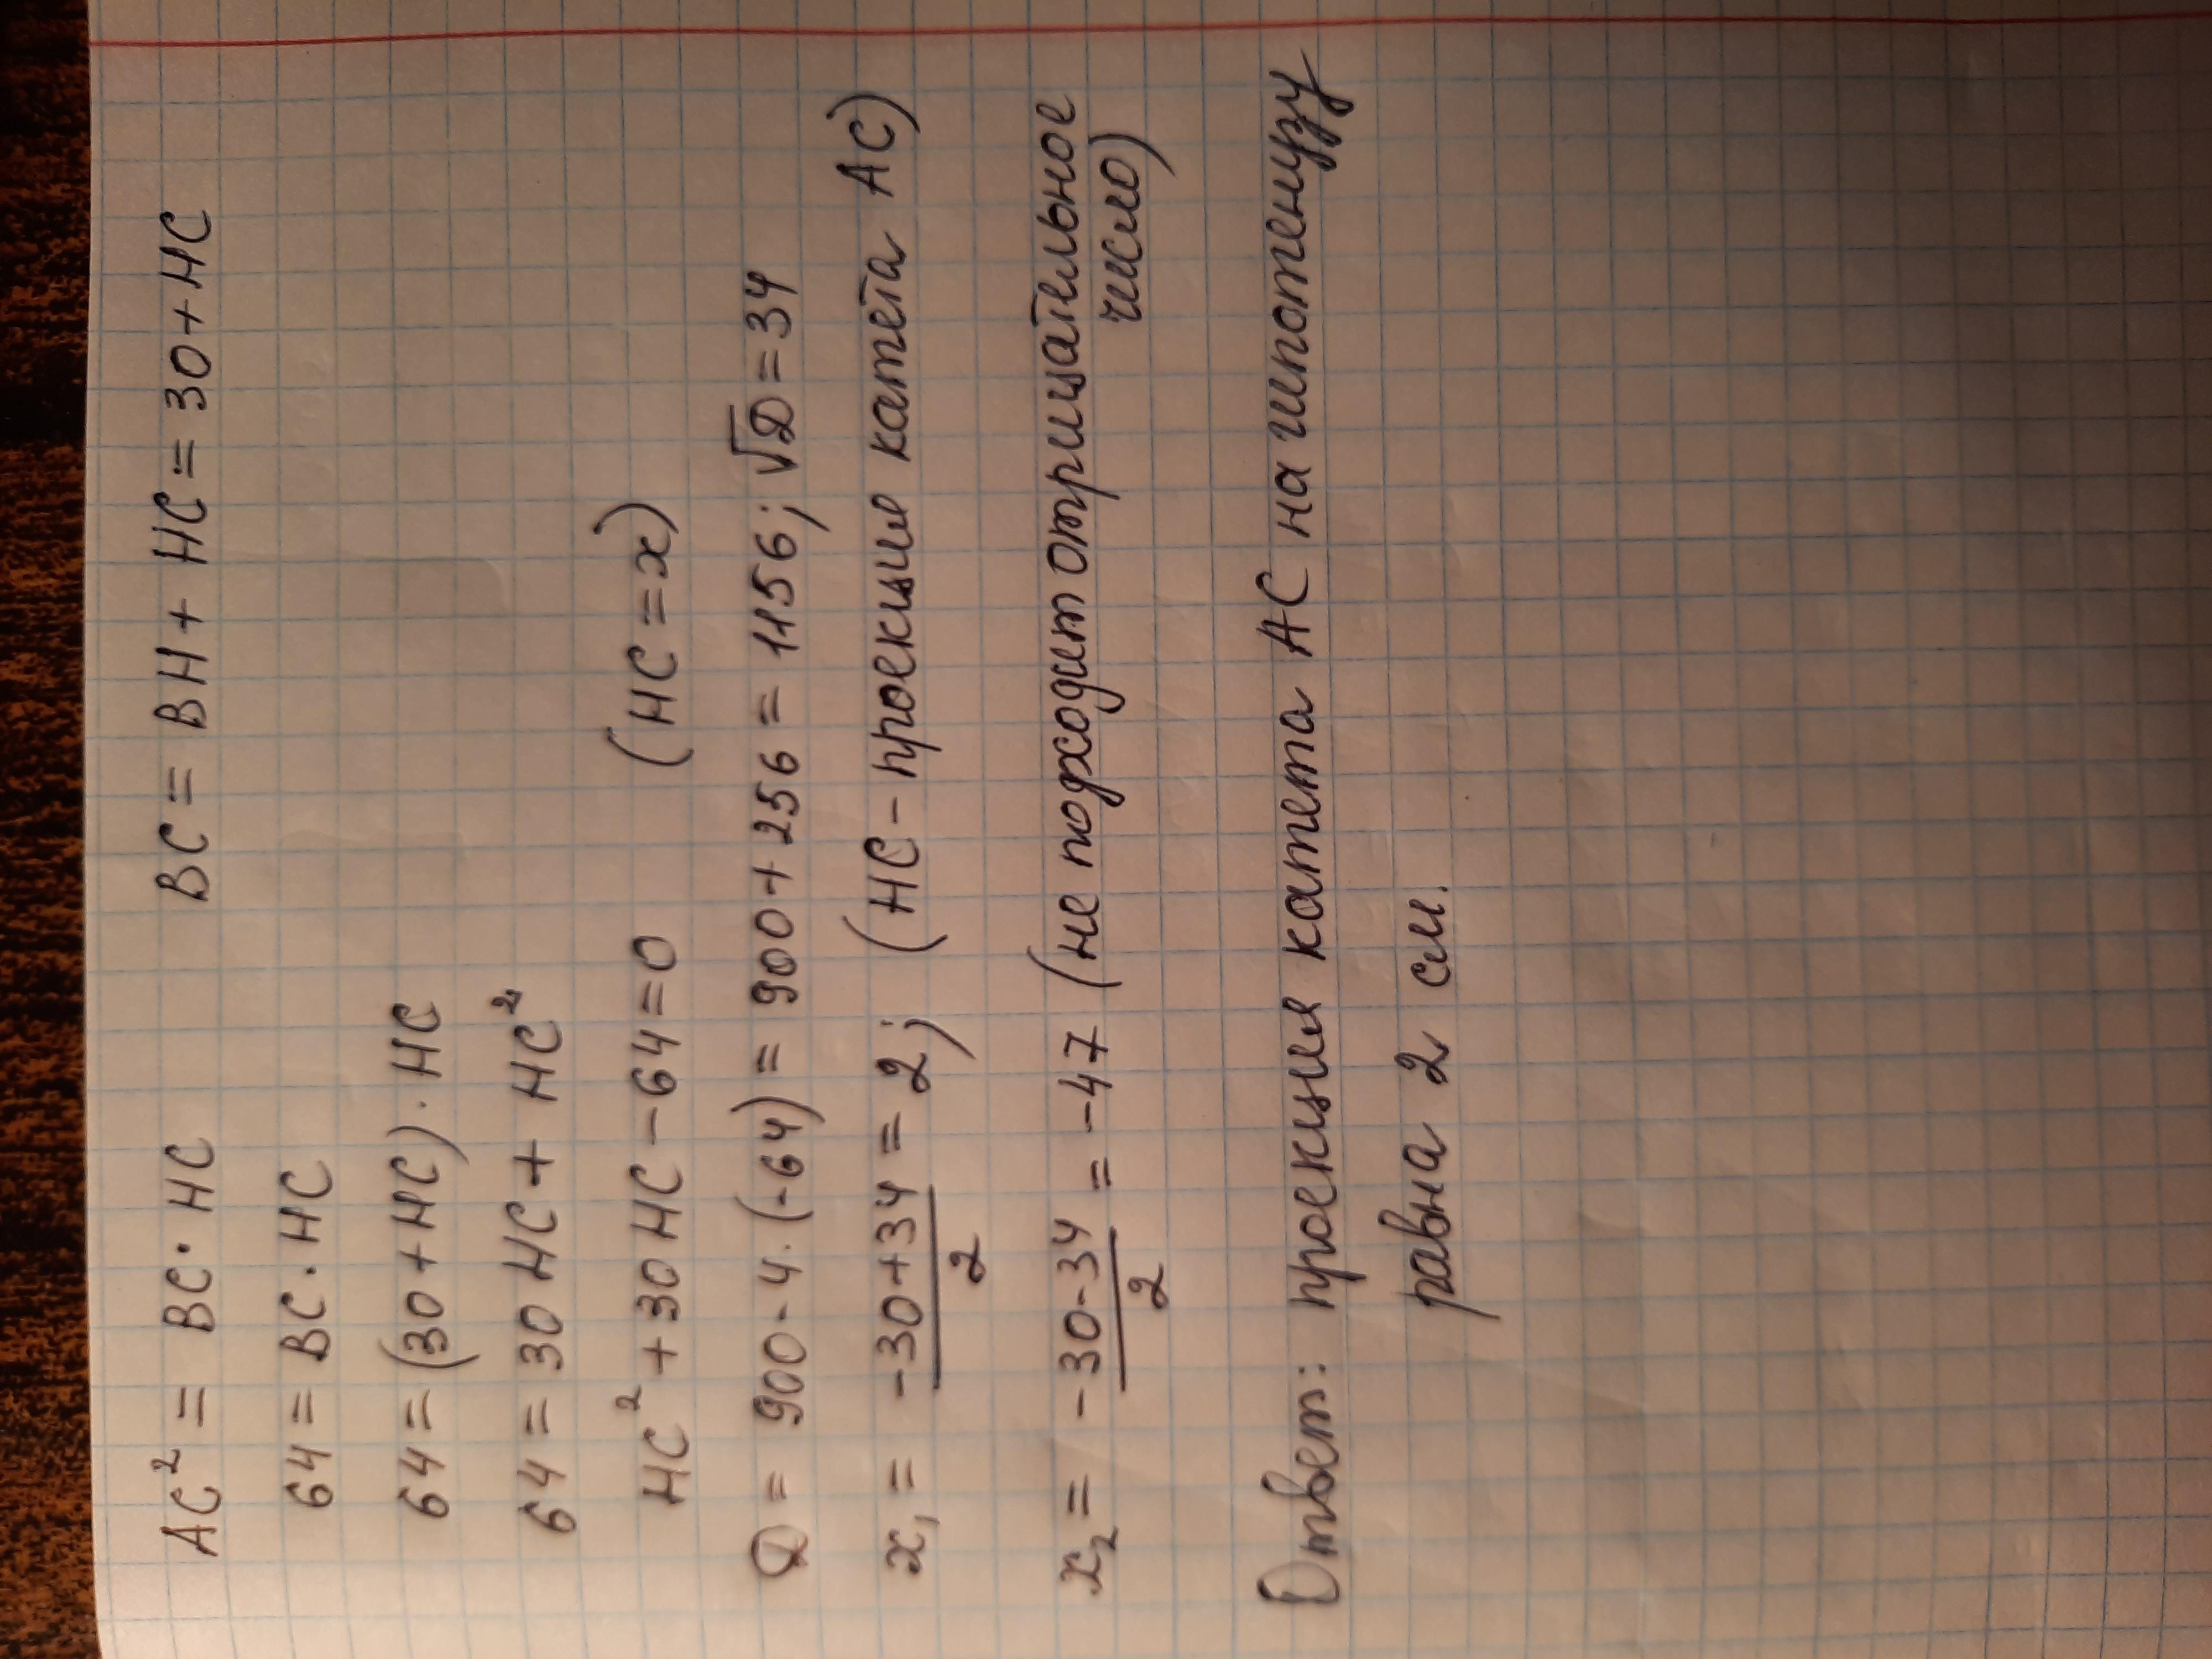 AC² = BC · HC BC = BH + HC = 30 + HC
64 = BC · HC
64 = (30 + HC) · HC
64 = 30 HC + HC²
HC² + 30 HC - 64 = 0 (HC = x)
D = 900 - 4 · (-64) = 900 + 256 = 1156; √D = 34
x₁ = (-30 + 34)/2 = 2; (HC - проекция катета AC)
x₂ = (-30 - 34)/2 = -47 (не подходит отрицательное
число)
Ответ: проекция катета AC на гипотенузу
равна 2 см.